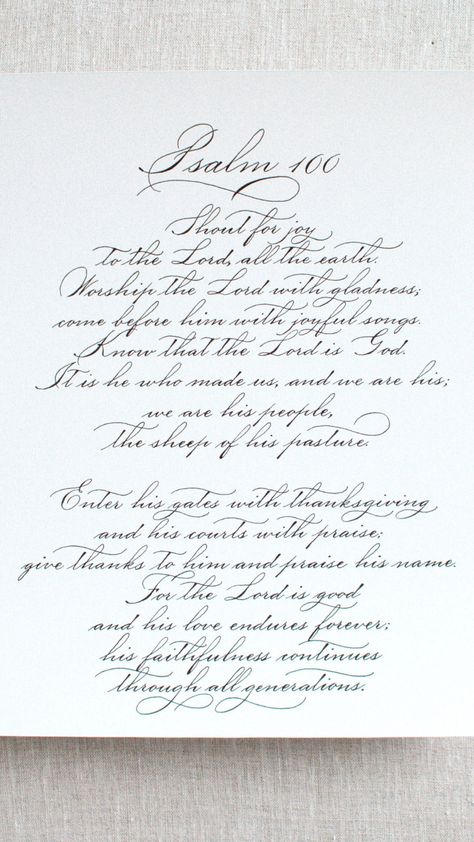 Psalm 100
Shout for joy
to the Lord, all the earth.
Worship the Lord with gladness;
come before him with joyful songs.
Know that the Lord is God.
It is he who made us, and we are his;
we are his people,
the sheep of his pasture.
Enter his gates with thanksgiving
and his courts with praise;
give thanks to him and praise his name.
For the Lord is good
and his love endures forever;
his faithfulness continues
through all generations.